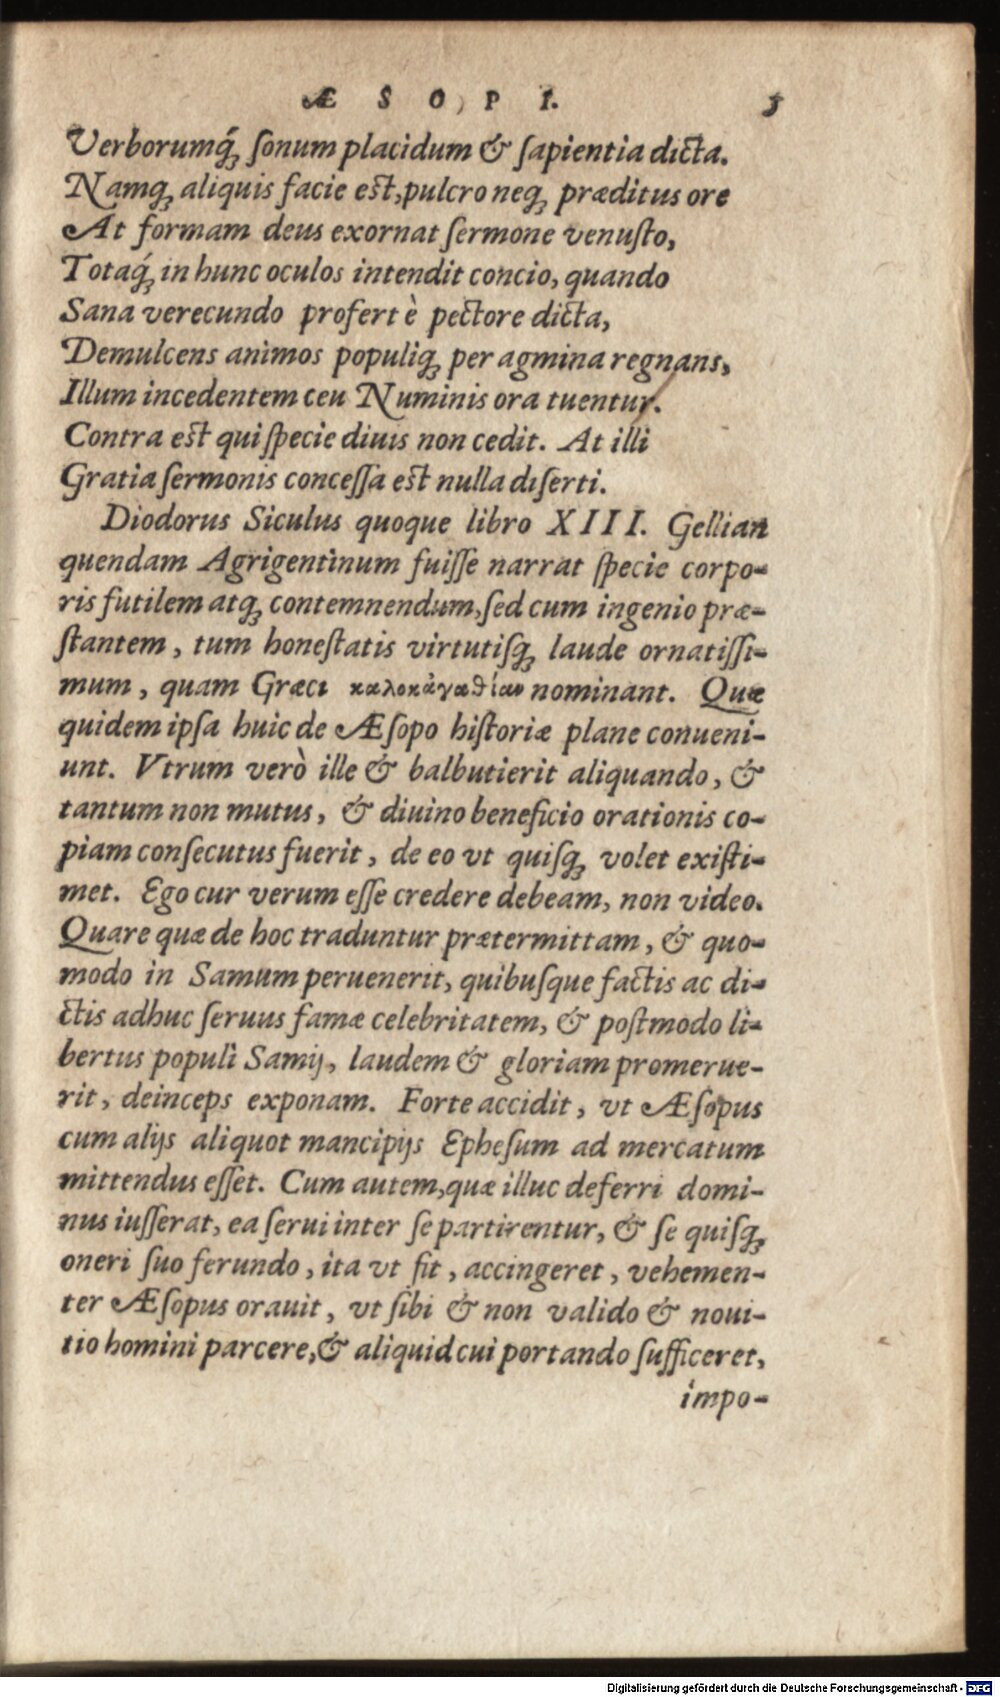 ÆSOPI. 5
Verborumq́; ſonum placidum & ſapientia dicta.
Namq; aliquis facie est, pulcro neq; præditus ore
At formam deus exornat ſermone venuſto,
Totaq́; in hunc oculos intendit concio, quando
Sana verecundo profert è pectore dicta,
Demulcens animos populiq; per agmina regnans,
Illum incedentem ceu Numinis ora tuentur.
Contra est qui ſpecie diuis non cedit. At illi
Gratia ſermonis conceſſa est nulla diſerti.
Diodorus Siculus quoque libro XIII. Gellian
quendam Agrigentinum fuiſſe narrat ſpecie corpo-
ris futilem atq; contemnendum, ſed cum ingenio præ-
ſtantem, tum honeſtatis virtutiſq; laude ornatiſſi-
mum, quam Græci καλοκἀγαθίαν nominant. Quæ
quidem ipſa huic de Æſopo hiſtoriæ plane conueni-
unt. Vtrum verò ille & balbutierit aliquando, &
tantum non mutus, & diuino beneficio orationis co-
piam conſecutus fuerit, de eo vt quiſq; volet exiſti-
met. Ego cur verum eſſe credere debeam, non video.
Quare quæ de hoc traduntur prætermittam, & quo-
modo in Samum peruenerit, quibuſque factis ac di-
ctis adhuc ſeruus famæ celebritatem, & poſtmodo li-
bertus populi Samij, laudem & gloriam promerue-
rit, deinceps exponam. Forte accidit, vt Æſopus
cum alijs aliquot mancipijs Epheſum ad mercatum
mittendus eſſet. Cum autem, quæ illuc deferri domi-
nus iuſſerat, ea ſerui inter ſe partirentur, & ſe quiſq;
oneri ſuo ferundo, ita vt fit, accingeret, vehemen-
ter Æſopus orauit, vt ſibi & non valido & noui-
tio homini parcere, & aliquid cui portando ſufficeret,
impo-
Digitalisierung gefördert durch die Deutsche Forschungsgemeinschaft - DFG